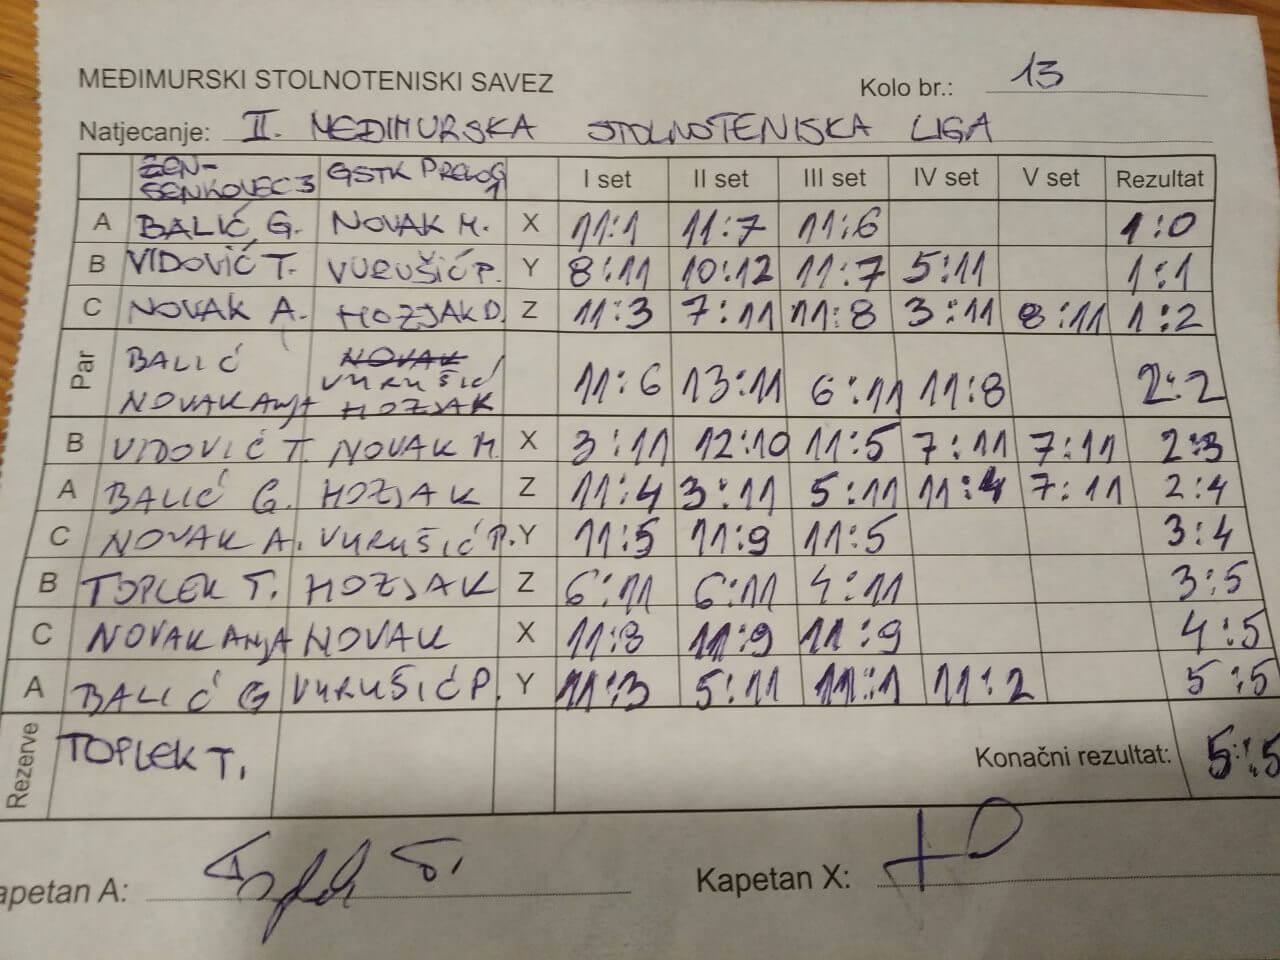 MEĐIMURSKI STOLNOTENISKI SAVEZ Kolo br.: 13
Natjecanje: II. MEĐIMURSKA STOLNOTENISKA LIGA
ŽEN- SENKOVEC 3 GSTK PRELOG 1 I set II set III set IV set V set Rezultat
A BALIĆ G. NOVAK M. X 11:1 11:7 11:6 1:0
B VIDOVIĆ T. VURUŠIĆ P. Y 8:11 10:12 11:7 5:11 1:1
C NOVAK A. HOZJAK D. Z 11:3 7:11 11:8 3:11 8:11 1:2
Par BALIĆ NOVAK ANJA NOVAK VURUŠIĆ HOZJAK 11:6 13:11 6:11 11:8 2:2
B VIDOVIĆ T. NOVAK M. X 3:11 12:10 11:5 7:11 7:11 2:3
A BALIĆ G. HOZJAK Z 11:4 3:11 5:11 11:4 7:11 2:4
C NOVAK A. VURUŠIĆ P. Y 11:5 11:9 11:5 3:4
B TOPLEK T. HOZJAK Z 6:11 6:11 4:11 3:5
C NOVAK ANJA NOVAK X 11:8 11:9 11:9 4:5
A BALIĆ G VURUŠIĆ P. Y 11:3 5:11 11:1 11:2 5:5
Rezerve TOPLEK T. Konačni rezultat: 5:5
apetan A: Kapetan X: